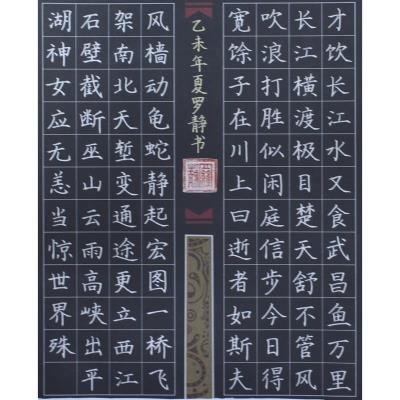 才饮长江水又食武昌鱼万里
长江横渡极目楚天舒不管风
吹浪打胜似闲庭信步今日得
宽馀子在川上曰逝者如斯夫
乙未年夏罗静书
风樯动龟蛇静起宏图一桥飞
架南北天堑变通途更立西江
石壁截断巫山云雨高峡出平
湖神女应无恙当惊世界殊